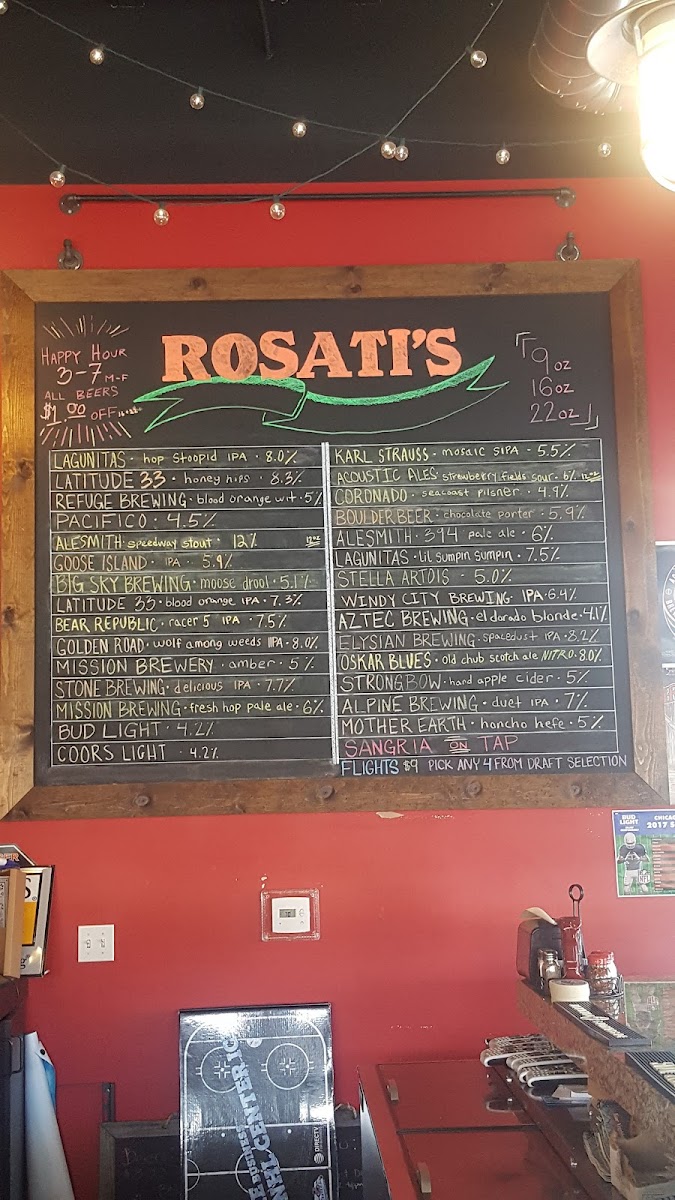 ROSATI'S
HAPPY HOUR
3-7 M-F
ALL BEERS
$1.00 OFF
9 oz
16 oz
22 oz
LAGUNITAS · hop stoopid IPA · 8.0%
LATITUDE 33 · honey hips · 8.3%
REFUGE BREWING · blood orange wit · 5%
PACIFICO · 4.5%
ALESMITH · speedway stout · 12% 12oz
GOOSE ISLAND · IPA · 5.9%
BIG SKY BREWING · moose drool · 5.1%
LATITUDE 33 · blood orange IPA · 7.3%
BEAR REPUBLIC · racer 5 IPA · 7.5%
GOLDEN ROAD · wolf among weeds IIPA · 8.0%
MISSION BREWERY · amber · 5%
STONE BREWING · delicious IPA · 7.7%
MISSION BREWING · fresh hop pale ale · 6%
BUD LIGHT · 4.2%
COORS LIGHT · 4.2%
KARL STRAUSS · mosaic SIPA · 5.5%
ACOUSTIC ALES · strawberry fields sour · 6% 12oz
CORONADO · seacoast pilsner · 4.9%
BOULDER BEER · chocolate porter · 5.9%
ALESMITH · 394 pale ale · 6%
LAGUNITAS · lil sumpin sumpin · 7.5%
STELLA ARTOIS · 5.0%
WINDY CITY BREWING · IPA · 6.4%
AZTEC BREWING · el dorado blonde · 4.1%
ELYSIAN BREWING · spacedust IPA · 8.2%
OSKAR BLUES · old chub scotch ale NITRO · 8.0%
STRONGBOW · hard apple cider · 5%
ALPINE BREWING · duet IPA · 7%
MOTHER EARTH · honcho hefe · 5%
SANGRIA ON TAP
FLIGHTS $9 PICK ANY 4 FROM DRAFT SELECTION
BUD
LIGHT
CHICAG
2017 S
NFL
NHL CENTER IC
DIRECTV